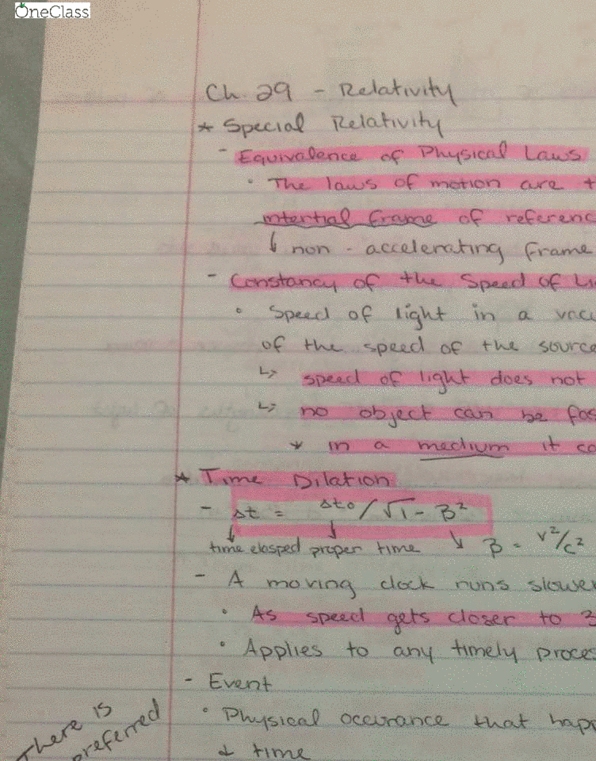 OneClass
Ch. 29 - Relativity
* Special Relativity
- Equivalence of Physical Laws
• The laws of motion are t
intertial frame of referenc
↓ non-accelerating frame
- Constancy of the Speed of Li
• Speed of light in a vacu
of the speed of the source
↳ speed of light does not
↳ no object can be fas
* in a medium it co
* Time Dilation
- Δt = Δt₀/√1-β²
time elasped proper time ↘ β = v²/c²
- A moving clock runs slower
• As speed gets closer to 3
• Applies to any timely proces
- Event
• Physical occurance that happ
& time
There is
preferred